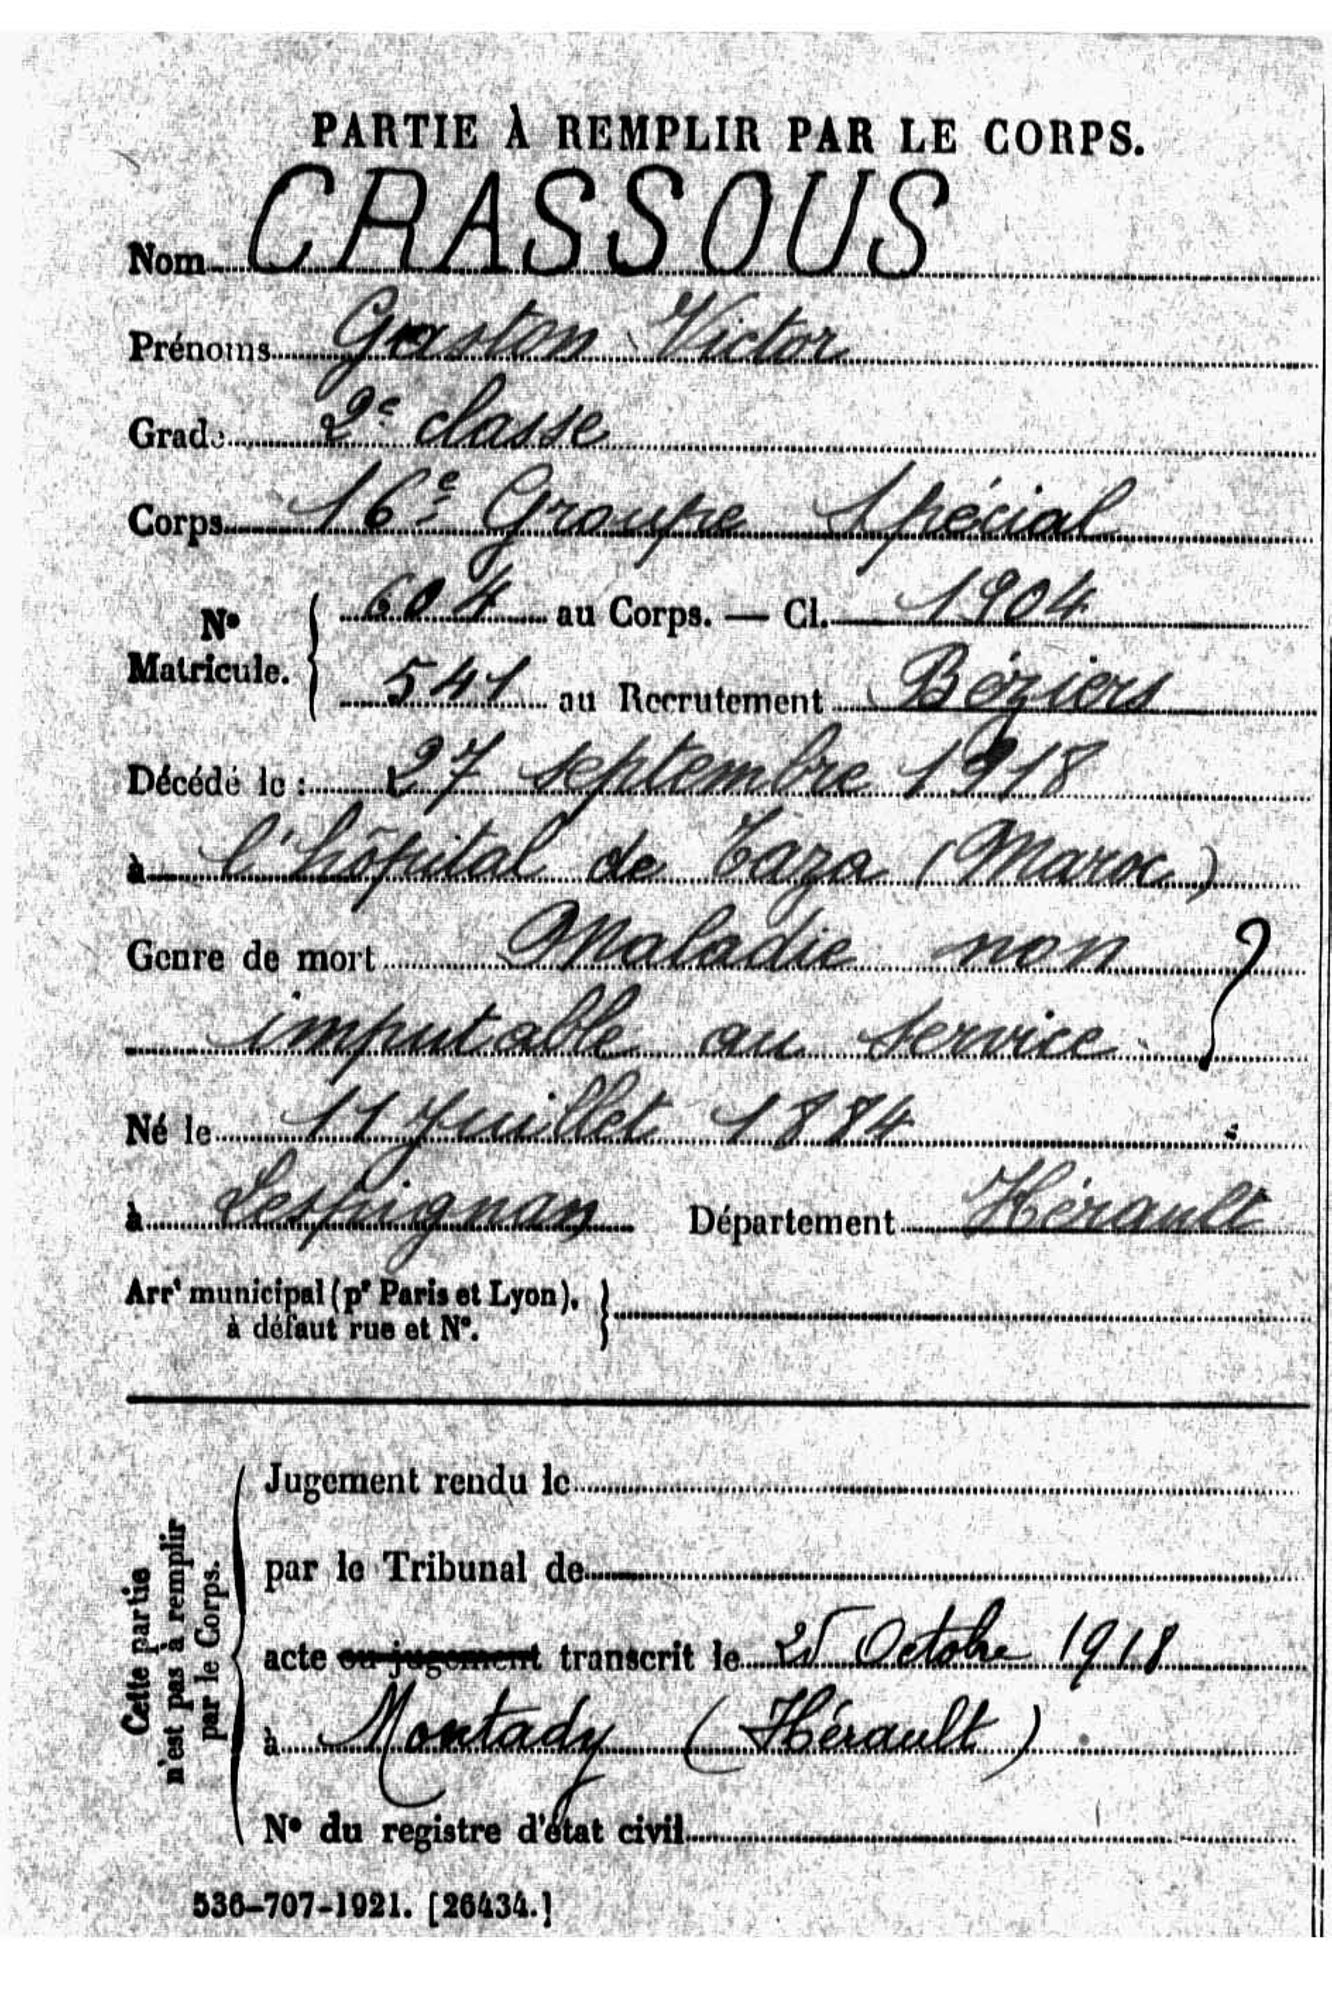 PARTIE À REMPLIR PAR LE CORPS.
Nom CRASSOUS
Prénoms Gaston Victor
Grade 2e classe
Corps 16e Groupe Spécial
No Matricule. { 604 au Corps. — Cl. 1904
541 au Recrutement Béziers
Décédé le : 27 septembre 1918
à l'hôpital de Taza (Maroc)
Genre de mort Maladie non
imputable au service ?
Né le 11 Juillet 1884
à Lespignan Département Hérault
Arrt municipal (pr Paris et Lyon),
à défaut rue et No. }
Cette partie
n'est pas à remplir
par le Corps.
Jugement rendu le
par le Tribunal de
acte ou jugement transcrit le 25 Octobre 1918
à Montady (Hérault)
No du registre d'état civil
536-707-1921. [26434.]